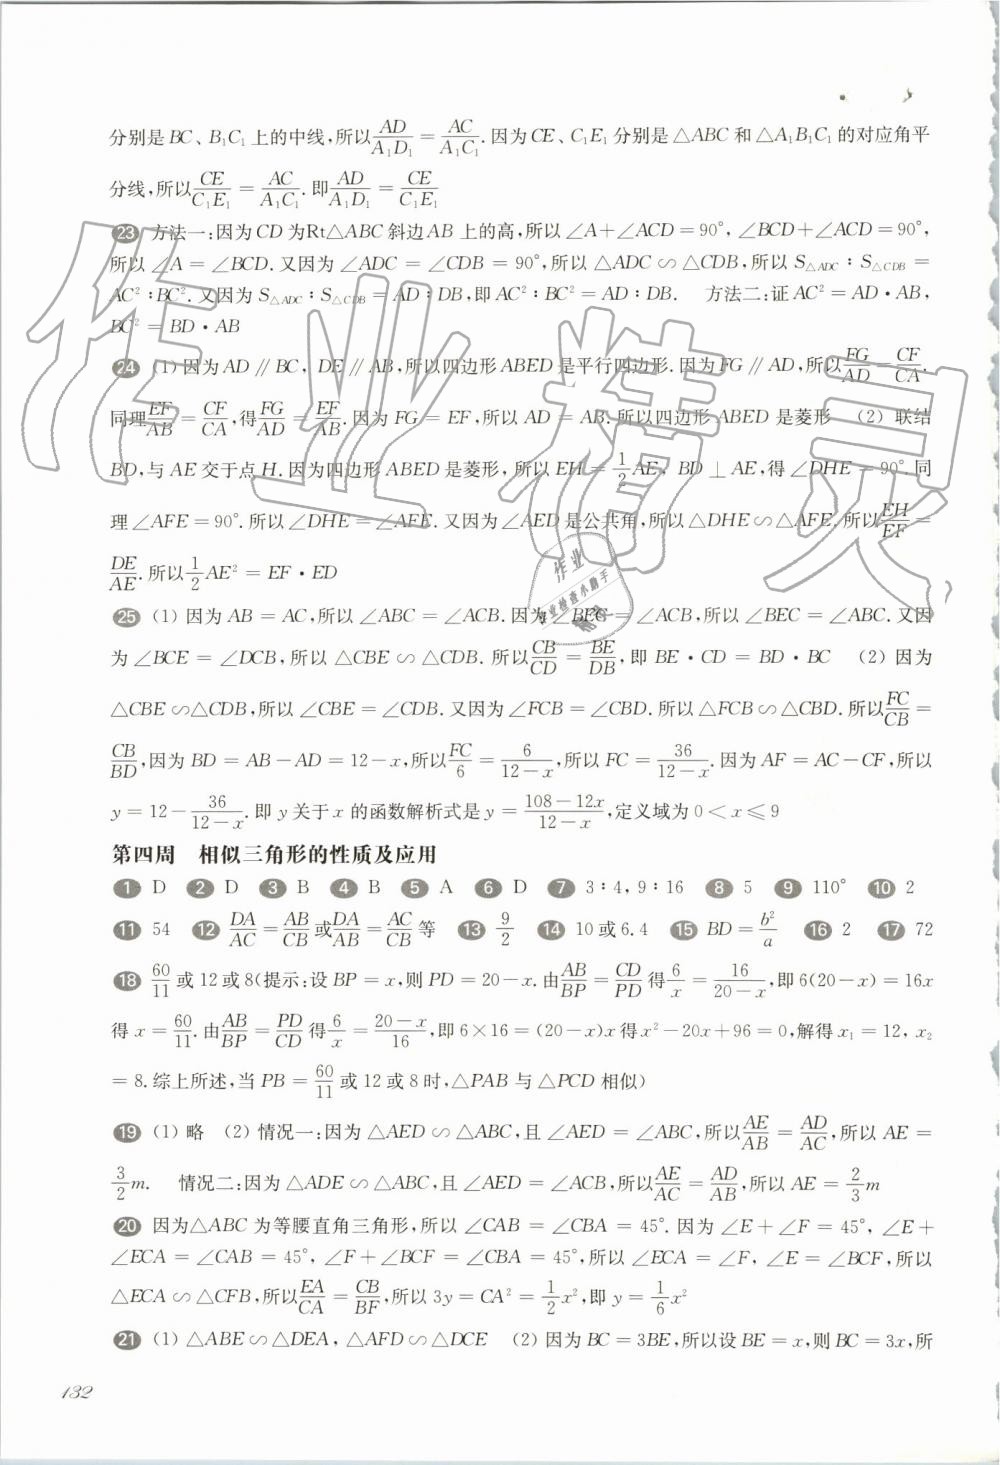 分别是 BC、B₁C₁ 上的中线,所以 AD/A₁D₁ = AC/A₁C₁. 因为 CE、C₁E₁ 分别是△ABC 和△A₁B₁C₁ 的对应角平
分线,所以 CE/C₁E₁ = AC/A₁C₁. 即 AD/A₁D₁ = CE/C₁E₁
23 方法一:因为 CD 为 Rt△ABC 斜边 AB 上的高,所以∠A+∠ACD=90°,∠BCD+∠ACD=90°,
所以∠A=∠BCD. 又因为∠ADC=∠CDB=90°,所以△ADC∽△CDB,所以 S△ADC∶S△CDB=
AC²∶BC². 又因为 S△ADC∶S△CDB=AD∶DB,即 AC²∶BC²=AD∶DB. 方法二:证 AC²=AD·AB,
BC²=BD·AB
24 (1) 因为 AD∥BC,DE∥AB,所以四边形 ABED 是平行四边形. 因为 FG∥AD,所以 FG/AD = CF/CA.
同理 EF/AB = CF/CA,得 FG/AD = EF/AB. 因为 FG=EF,所以 AD=AB. 所以四边形 ABED 是菱形 (2) 联结
BD,与 AE 交于点 H. 因为四边形 ABED 是菱形,所以 EH=1/2 AE,BD⊥AE,得∠DHE=90°. 同
理∠AFE=90°. 所以∠DHE=∠AFE. 又因为∠AED 是公共角,所以△DHE∽△AFE. 所以 EH/EF =
DE/AE. 所以 1/2 AE²=EF·ED
25 (1) 因为 AB=AC,所以∠ABC=∠ACB. 因为∠BEC=∠ACB,所以∠BEC=∠ABC. 又因
为∠BCE=∠DCB,所以△CBE∽△CDB. 所以 CB/CD = BE/DB,即 BE·CD=BD·BC (2) 因为
△CBE∽△CDB,所以∠CBE=∠CDB. 又因为∠FCB=∠CBD. 所以△FCB∽△CBD. 所以 FC/CB =
CB/BD,因为 BD=AB-AD=12-x,所以 FC/6 = 6/(12-x),所以 FC=36/(12-x). 因为 AF=AC-CF,所以
y=12-36/(12-x). 即 y 关于 x 的函数解析式是 y=(108-12x)/(12-x),定义域为 0<x≤9
第四周 相似三角形的性质及应用
1 D 2 D 3 B 4 B 5 A 6 D 7 3∶4,9∶16 8 5 9 110° 10 2
11 54 12 DA/AC = AB/CB 或 DA/AB = AC/CB 等 13 9/2 14 10 或 6.4 15 BD=b²/a 16 2 17 72
18 60/11 或 12 或 8(提示:设 BP=x,则 PD=20-x. 由 AB/BP = CD/PD 得 6/x = 16/(20-x),即 6(20-x)=16x
得 x=60/11. 由 AB/BP = PD/CD 得 6/x = (20-x)/16,即 6×16=(20-x)x 得 x²-20x+96=0,解得 x₁=12,x₂
=8. 综上所述,当 PB=60/11 或 12 或 8 时,△PAB 与△PCD 相似)
19 (1) 略 (2) 情况一:因为△AED∽△ABC,且∠AED=∠ABC,所以 AE/AB = AD/AC,所以 AE=
3/2 m. 情况二:因为△ADE∽△ABC,且∠AED=∠ACB,所以 AE/AC = AD/AB,所以 AE=2/3 m
20 因为△ABC 为等腰直角三角形,所以∠CAB=∠CBA=45°. 因为∠E+∠F=45°,∠E+
∠ECA=∠CAB=45°,∠F+∠BCF=∠CBA=45°,所以∠ECA=∠F,∠E=∠BCF,所以
△ECA∽△CFB,所以 EA/CA = CB/BF,所以 3y=CA²=1/2 x²,即 y=1/6 x²
21 (1) △ABE∽△DEA,△AFD∽△DCE (2) 因为 BC=3BE,所以设 BE=x,则 BC=3x,所
132
作业精灵
作业
作业检查小助手
精灵